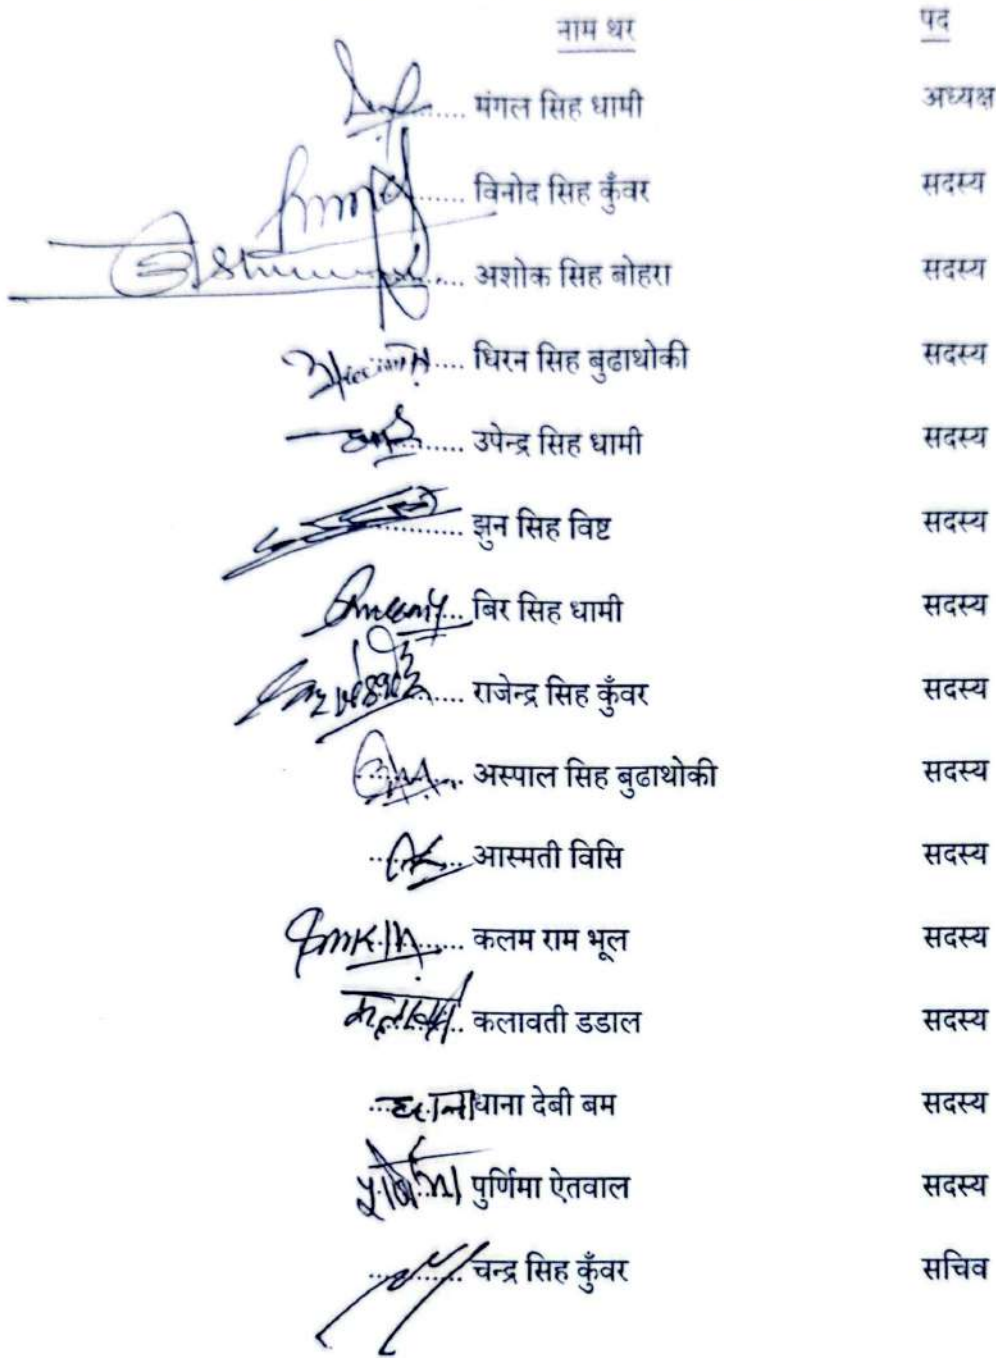 नाम थर पद
मंगल सिह धामी अध्यक्ष
विनोद सिह कुँवर सदस्य
अशोक सिह बोहरा सदस्य
धिरन सिह बुढाथोकी सदस्य
उपेन्द्र सिह धामी सदस्य
झुन सिह विष्ट सदस्य
बिर सिह धामी सदस्य
राजेन्द्र सिह कुँवर सदस्य
अस्पाल सिह बुढाथोकी सदस्य
आस्मती विसि सदस्य
कलम राम भूल सदस्य
कलावती डडाल सदस्य
धाना देबी बम सदस्य
पुर्णिमा ऐतवाल सदस्य
चन्द्र सिह कुँवर सचिव